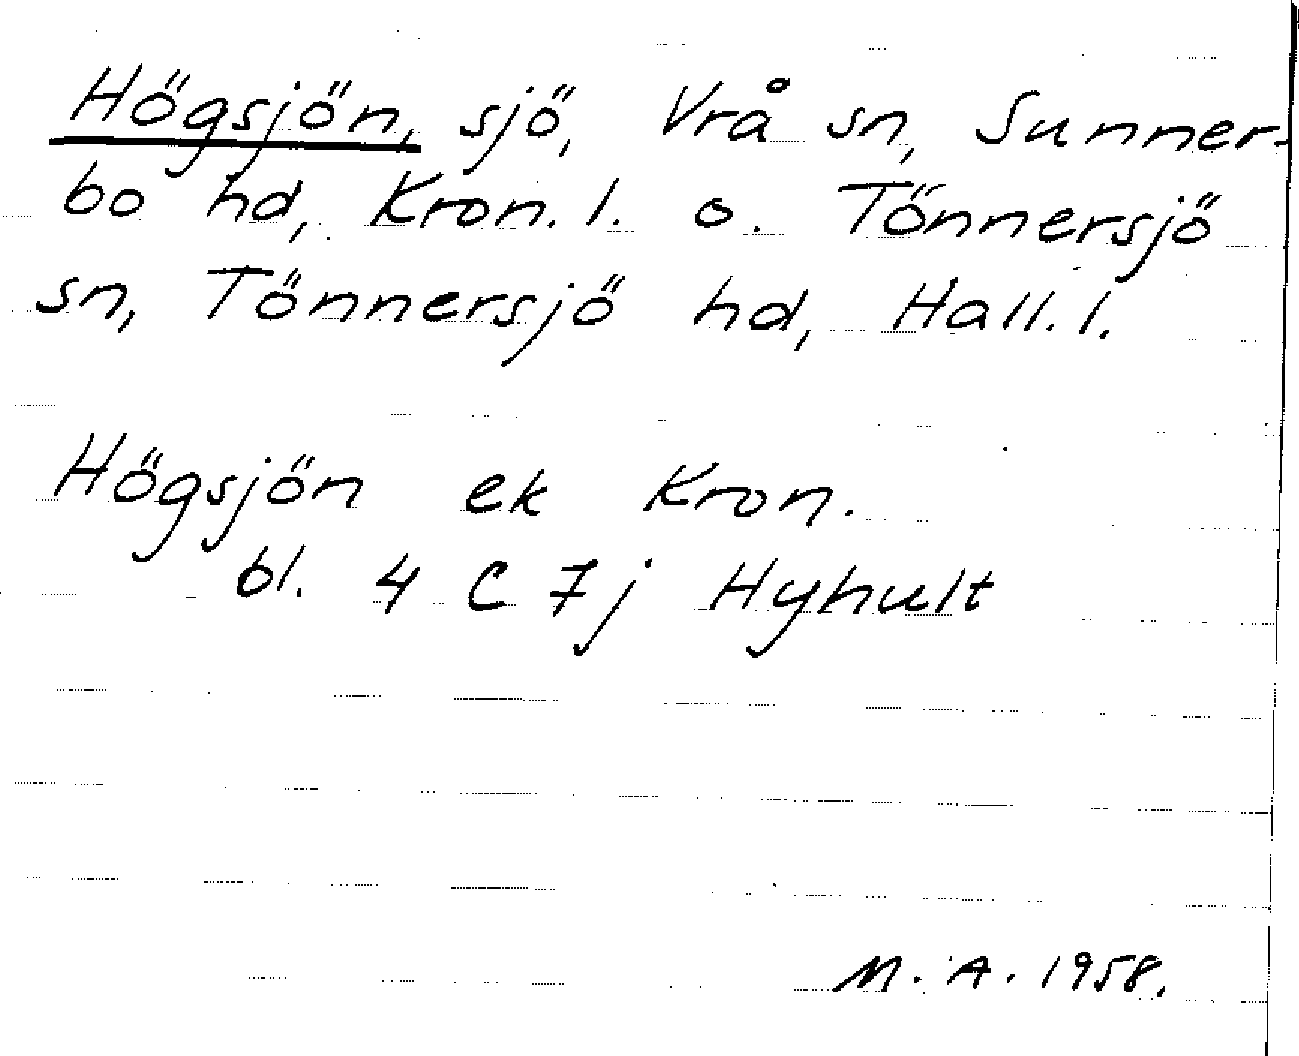 Högsjön, sjö, Vrå sn, Sunner-
bo hd, Kron. l. o. Tönnersjö
sn, Tönnersjö hd, Hall. l.
Högsjön ek Kron.
bl. 4 C 7j Hyhult
M. A. 1958.